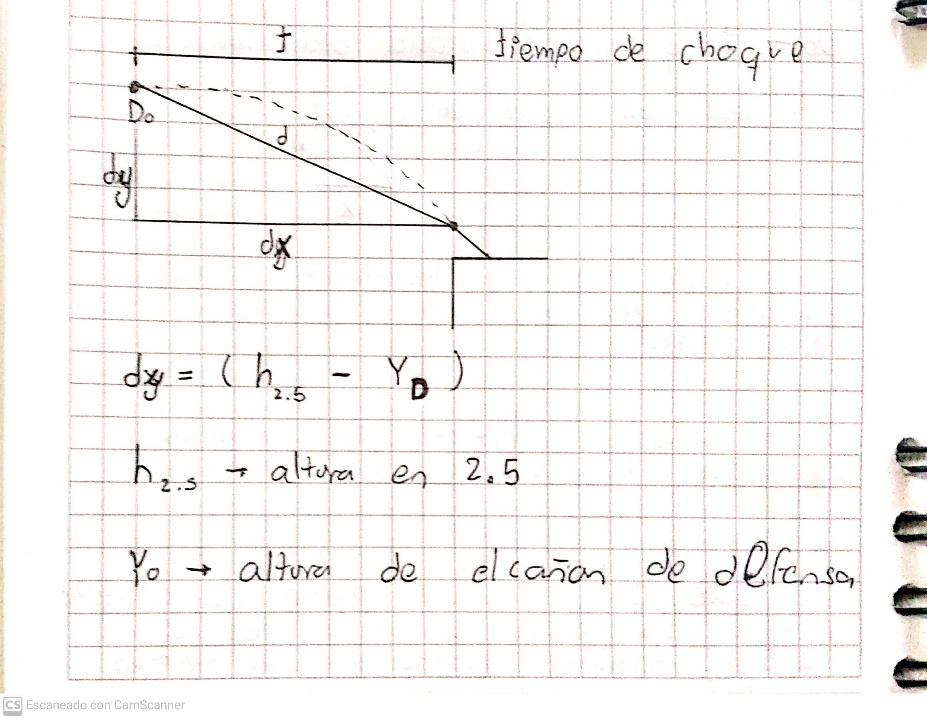 t tiempo de choque
Do
d
dy
dx
dy = ( h2.5 - YD )
h2.5 → altura en 2.5
Yo → altura de el cañon de defensa,
CS Escaneado con CamScanner